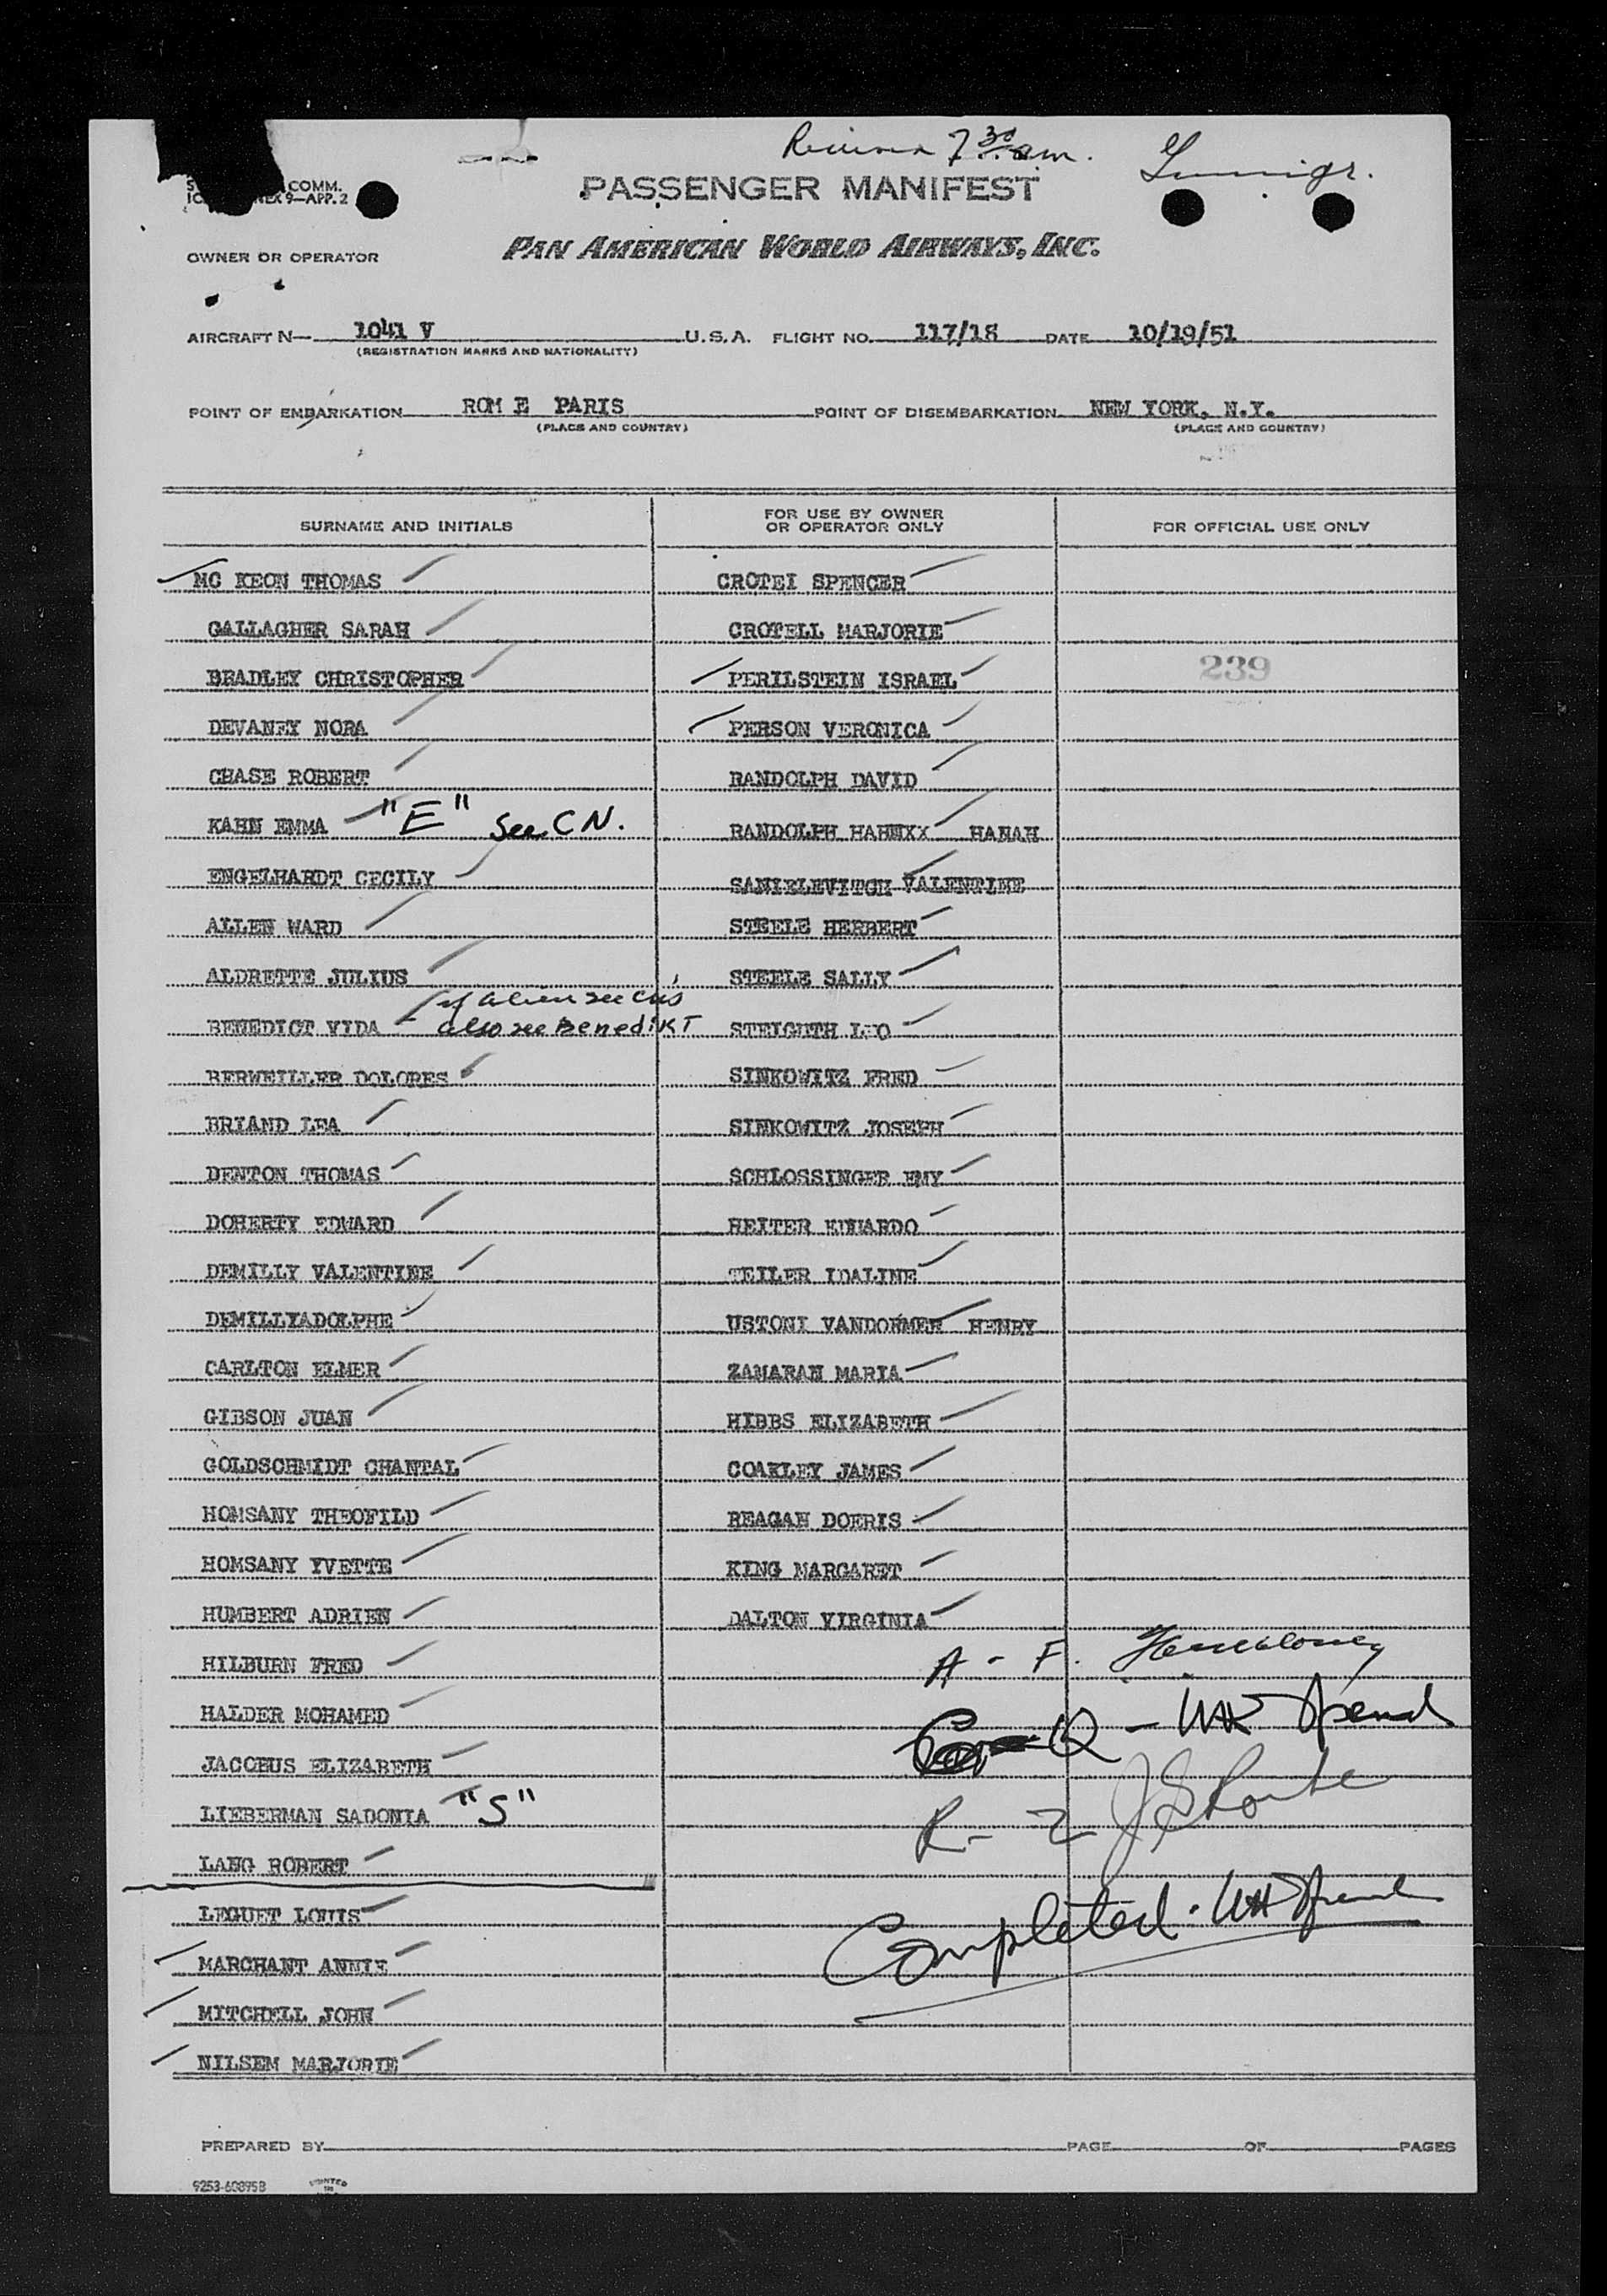 7 30 a.m.
COMM.
9—APP. 2
PASSENGER MANIFEST
OWNER OR OPERATOR
PAN AMERICAN WORLD AIRWAYS, INC.
AIRCRAFT N— 1041 V U.S.A. FLIGHT NO. 117/18 DATE 10/19/51
(REGISTRATION MARKS AND NATIONALITY)
POINT OF EMBARKATION ROM E PARIS POINT OF DISEMBARKATION NEW YORK, N.Y.
(PLACE AND COUNTRY) (PLACE AND COUNTRY)
SURNAME AND INITIALS
FOR USE BY OWNER
OR OPERATOR ONLY
FOR OFFICIAL USE ONLY
MC KEON THOMAS
GALLAGHER SARAH
BRADLEY CHRISTOPHER
DEVANEY NORA
CHASE ROBERT
KAHN EMMA "E" See CN.
ENGELHARDT CECILY
ALLEN WARD
ALDRETTE JULIUS
if alien see
BENEDICT VIDA also see BenediKT
BERWEILLER DOLORES
BRIAND LEA
DENTON THOMAS
DOHERTY EDWARD
DEMILLY VALENTINE
DEMILLYADOLPHE
CARLTON ELMER
GIBSON JUAN
GOLDSCHMIDT CHANTAL
HOMSANY THEOFILD
HOMSANY YVETTE
HUMBERT ADRIEN
HILBURN FRED
HALDER MOHAMED
JACOBUS ELIZABETH
LIEBERMAN SADONIA "S"
LANG ROBERT
LEGUET LOUIS
MARCHANT ANNIE
MITCHELL JOHN
NILSEM MARJORIE
CROTEI SPENCER
CROTELL MARJORIE
PERILSTEIN ISRAEL
PERSON VERONICA
RANDOLPH DAVID
RANDOLPH HAHNXX HANAH
SANIELEVITCH VALENTINE
STEELE HERBERT
STEELE SALLY
STEIGUTH LEO
SINKOWITZ FRED
SINKOWITZ JOSEPH
SCHLOSSINGER EMY
REITER EDUARDO
TEILER IDALINE
USTONI VANDORMER HENRY
ZAMARAN MARIA
HIBBS ELIZABETH
COAKLEY JAMES
REAGAN DOERIS
KING MARGARET
DALTON VIRGINIA
239
A - F.
Q -
R - Z
Completed.
PREPARED BY PAGE OF PAGES
9253-608958 PRINTED